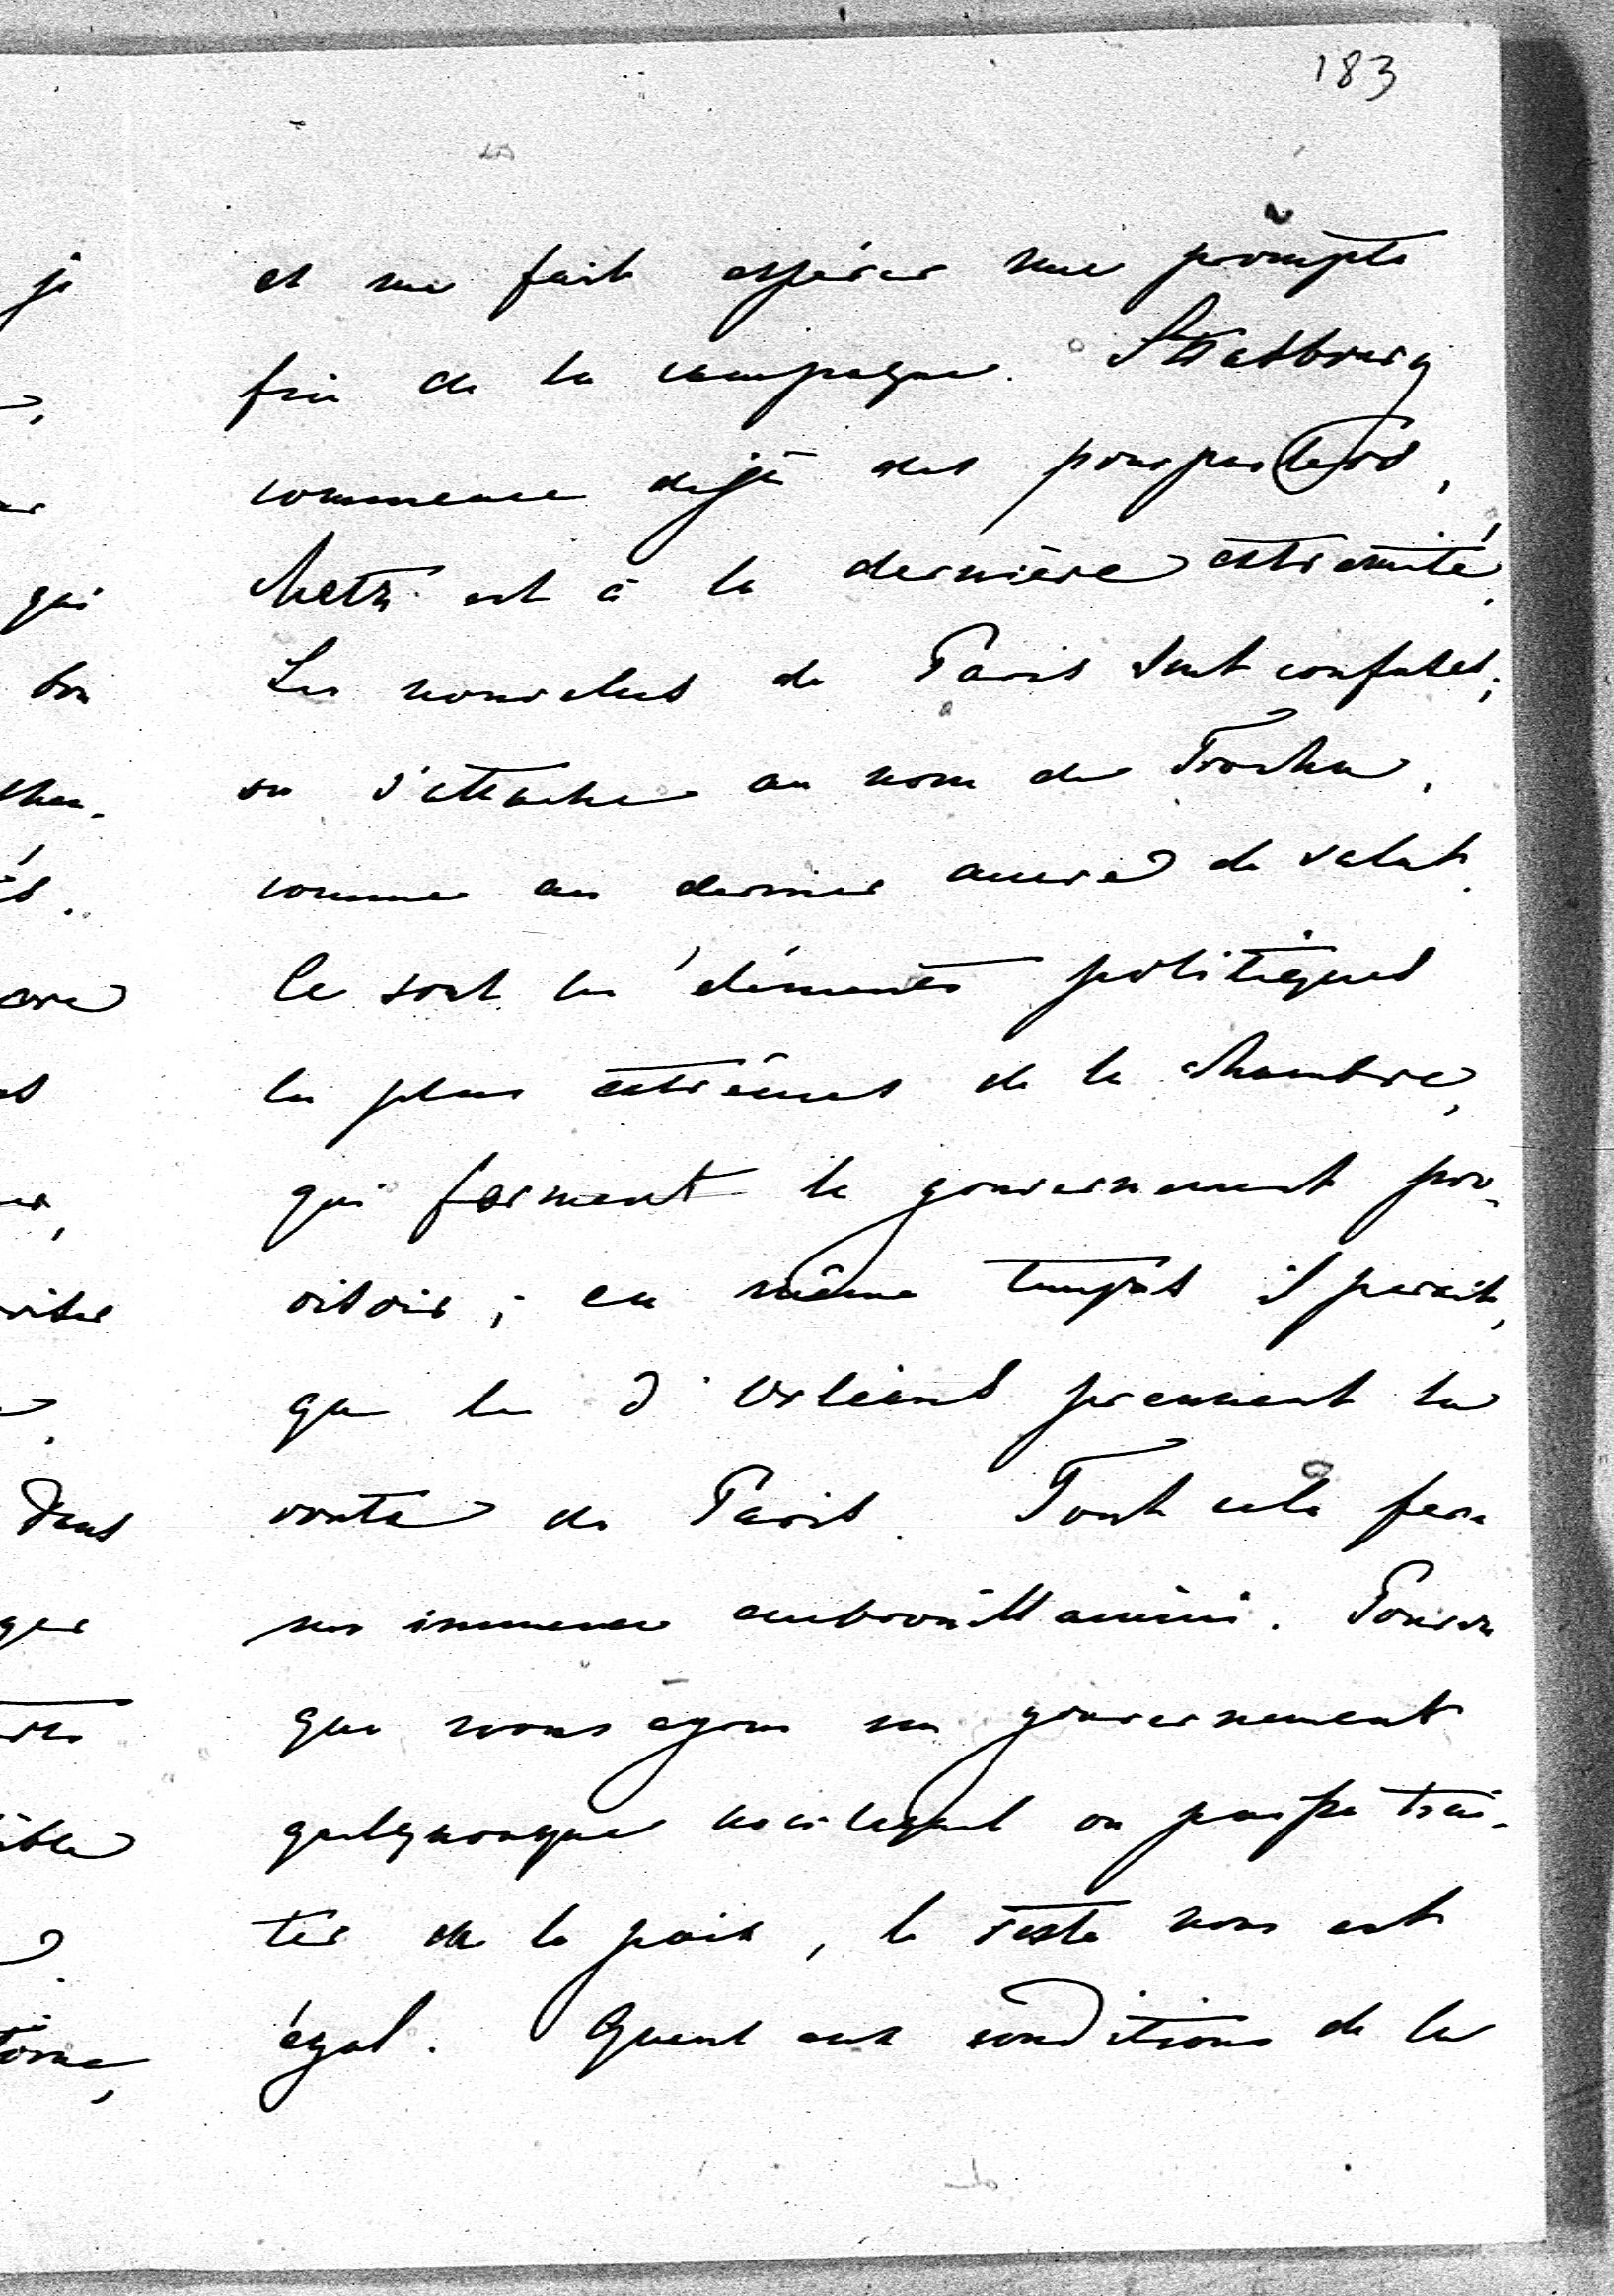 183
et me fait espérer une prompte
fin de la campagne. Strasbourg
commence déjà des pourparlers,
Metz est à la dernière extrémité.
Les nouvelles de Paris sont confuses;
on s'attache au nom de Trochu,
comme au dernier ancre de salut.
Ce sont les éléments politiques
les plus extrêmes de la chambre,
qui forment le gouvernement pro-
visoir; en même temps il parait,
que les d'Orléans prennent la
route de Paris. Tout cela fera
un immense embrouillamini. Pourvu
que nous ayons un gouvernement
quelquonque avec lequel on puisse trai-
ter de la paix, le reste nous est
égal. Quant aux conditions de la
je
qui
bon
dans